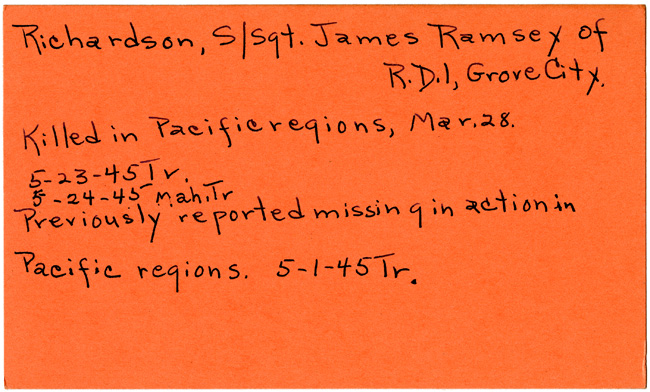 Richardson, S/Sgt. James Ramsey of
R.D.1, Grove City.
Killed in Pacific regions, Mar. 28.
5-23-45 Tr.
5-24-45 M.ah.Tr
Previously reported missing in action in
Pacific regions. 5-1-45 Tr.